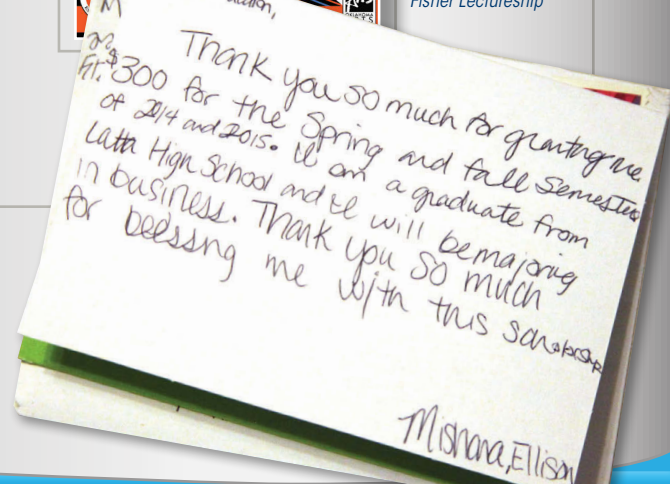 Fisher Lectureship
Thank you so much for granting me
$300 for the Spring and fall Semester
of 2014 and 2015. I am a graduate from
Latta High School and I will be majoring
in business. Thank you so much
for beessng me with this scholarship
Mishara, Ellison